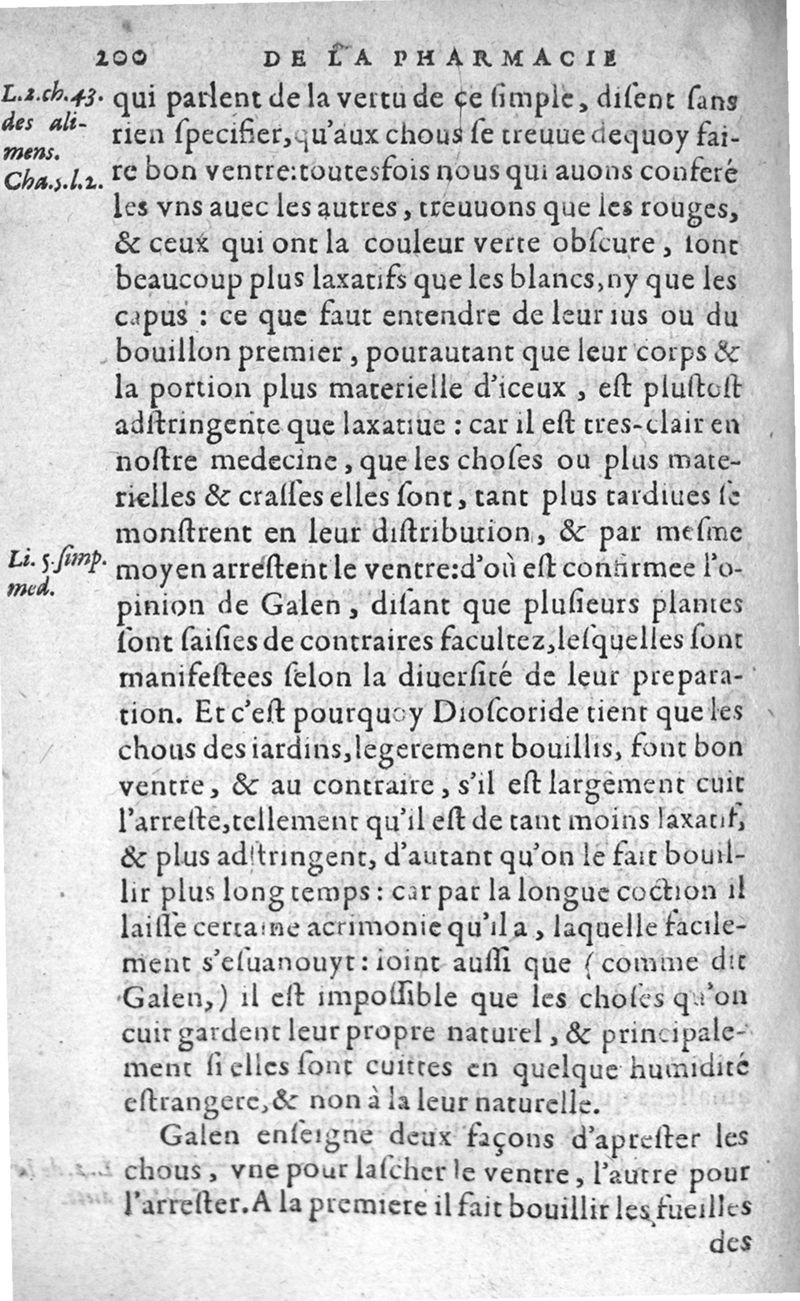 200 DE LA PHARMACIE
L.2.ch.43.
des ali-
mens.
Cha.5.l.2.
qui parlent de la vertu de ce ſimple, diſent ſans
rien ſpecifier, qu'aux chous ſe treuue dequoy fai-
re bon ventre: toutesfois nous qui auons conferé
les vns auec les autres, treuuons que les rouges,
& ceux qui ont la couleur verte obſcure, ſont
beaucoup plus laxatifs que les blancs, ny que les
capus : ce que faut entendre de leur ius ou du
bouillon premier, pourautant que leur corps &
la portion plus materielle d'iceux, eſt pluſtoſt
adſtringente que laxatiue : car il eſt tres-clair en
noſtre medecine, que les choſes ou plus mate-
rielles & craſſes elles ſont, tant plus tardiues ſe
monſtrent en leur diſtribution, & par meſme
Li. 5. ſimp.
med.
moyen arreſtent le ventre: d'où eſt confirmee l'o-
pinion de Galen, diſant que pluſieurs plantes
ſont ſaiſies de contraires facultez, leſquelles ſont
manifeſtees ſelon la diuerſité de leur prepara-
tion. Et c'eſt pourquoy Dioſcoride tient que les
chous des iardins, legerement bouillis, font bon
ventre, & au contraire, s'il eſt largement cuit
l'arreſte, tellement qu'il eſt de tant moins laxatif,
& plus adſtringent, d'autant qu'on le fait bouil-
lir plus long temps : car par la longue coction il
laiſſe certaine acrimonie qu'il a, laquelle facile-
ment s'eſuanouyt : ioint auſſi que (comme dit
Galen,) il eſt impoſſible que les choſes qu'on
cuit gardent leur propre naturel, & principale-
ment ſi elles ſont cuittes en quelque humidité
eſtrangere, & non à la leur naturelle.
Galen enſeigne deux façons d'apreſter les
chous, vne pour laſcher le ventre, l'autre pour
l'arreſter. A la premiere il fait bouillir les fueilles
des